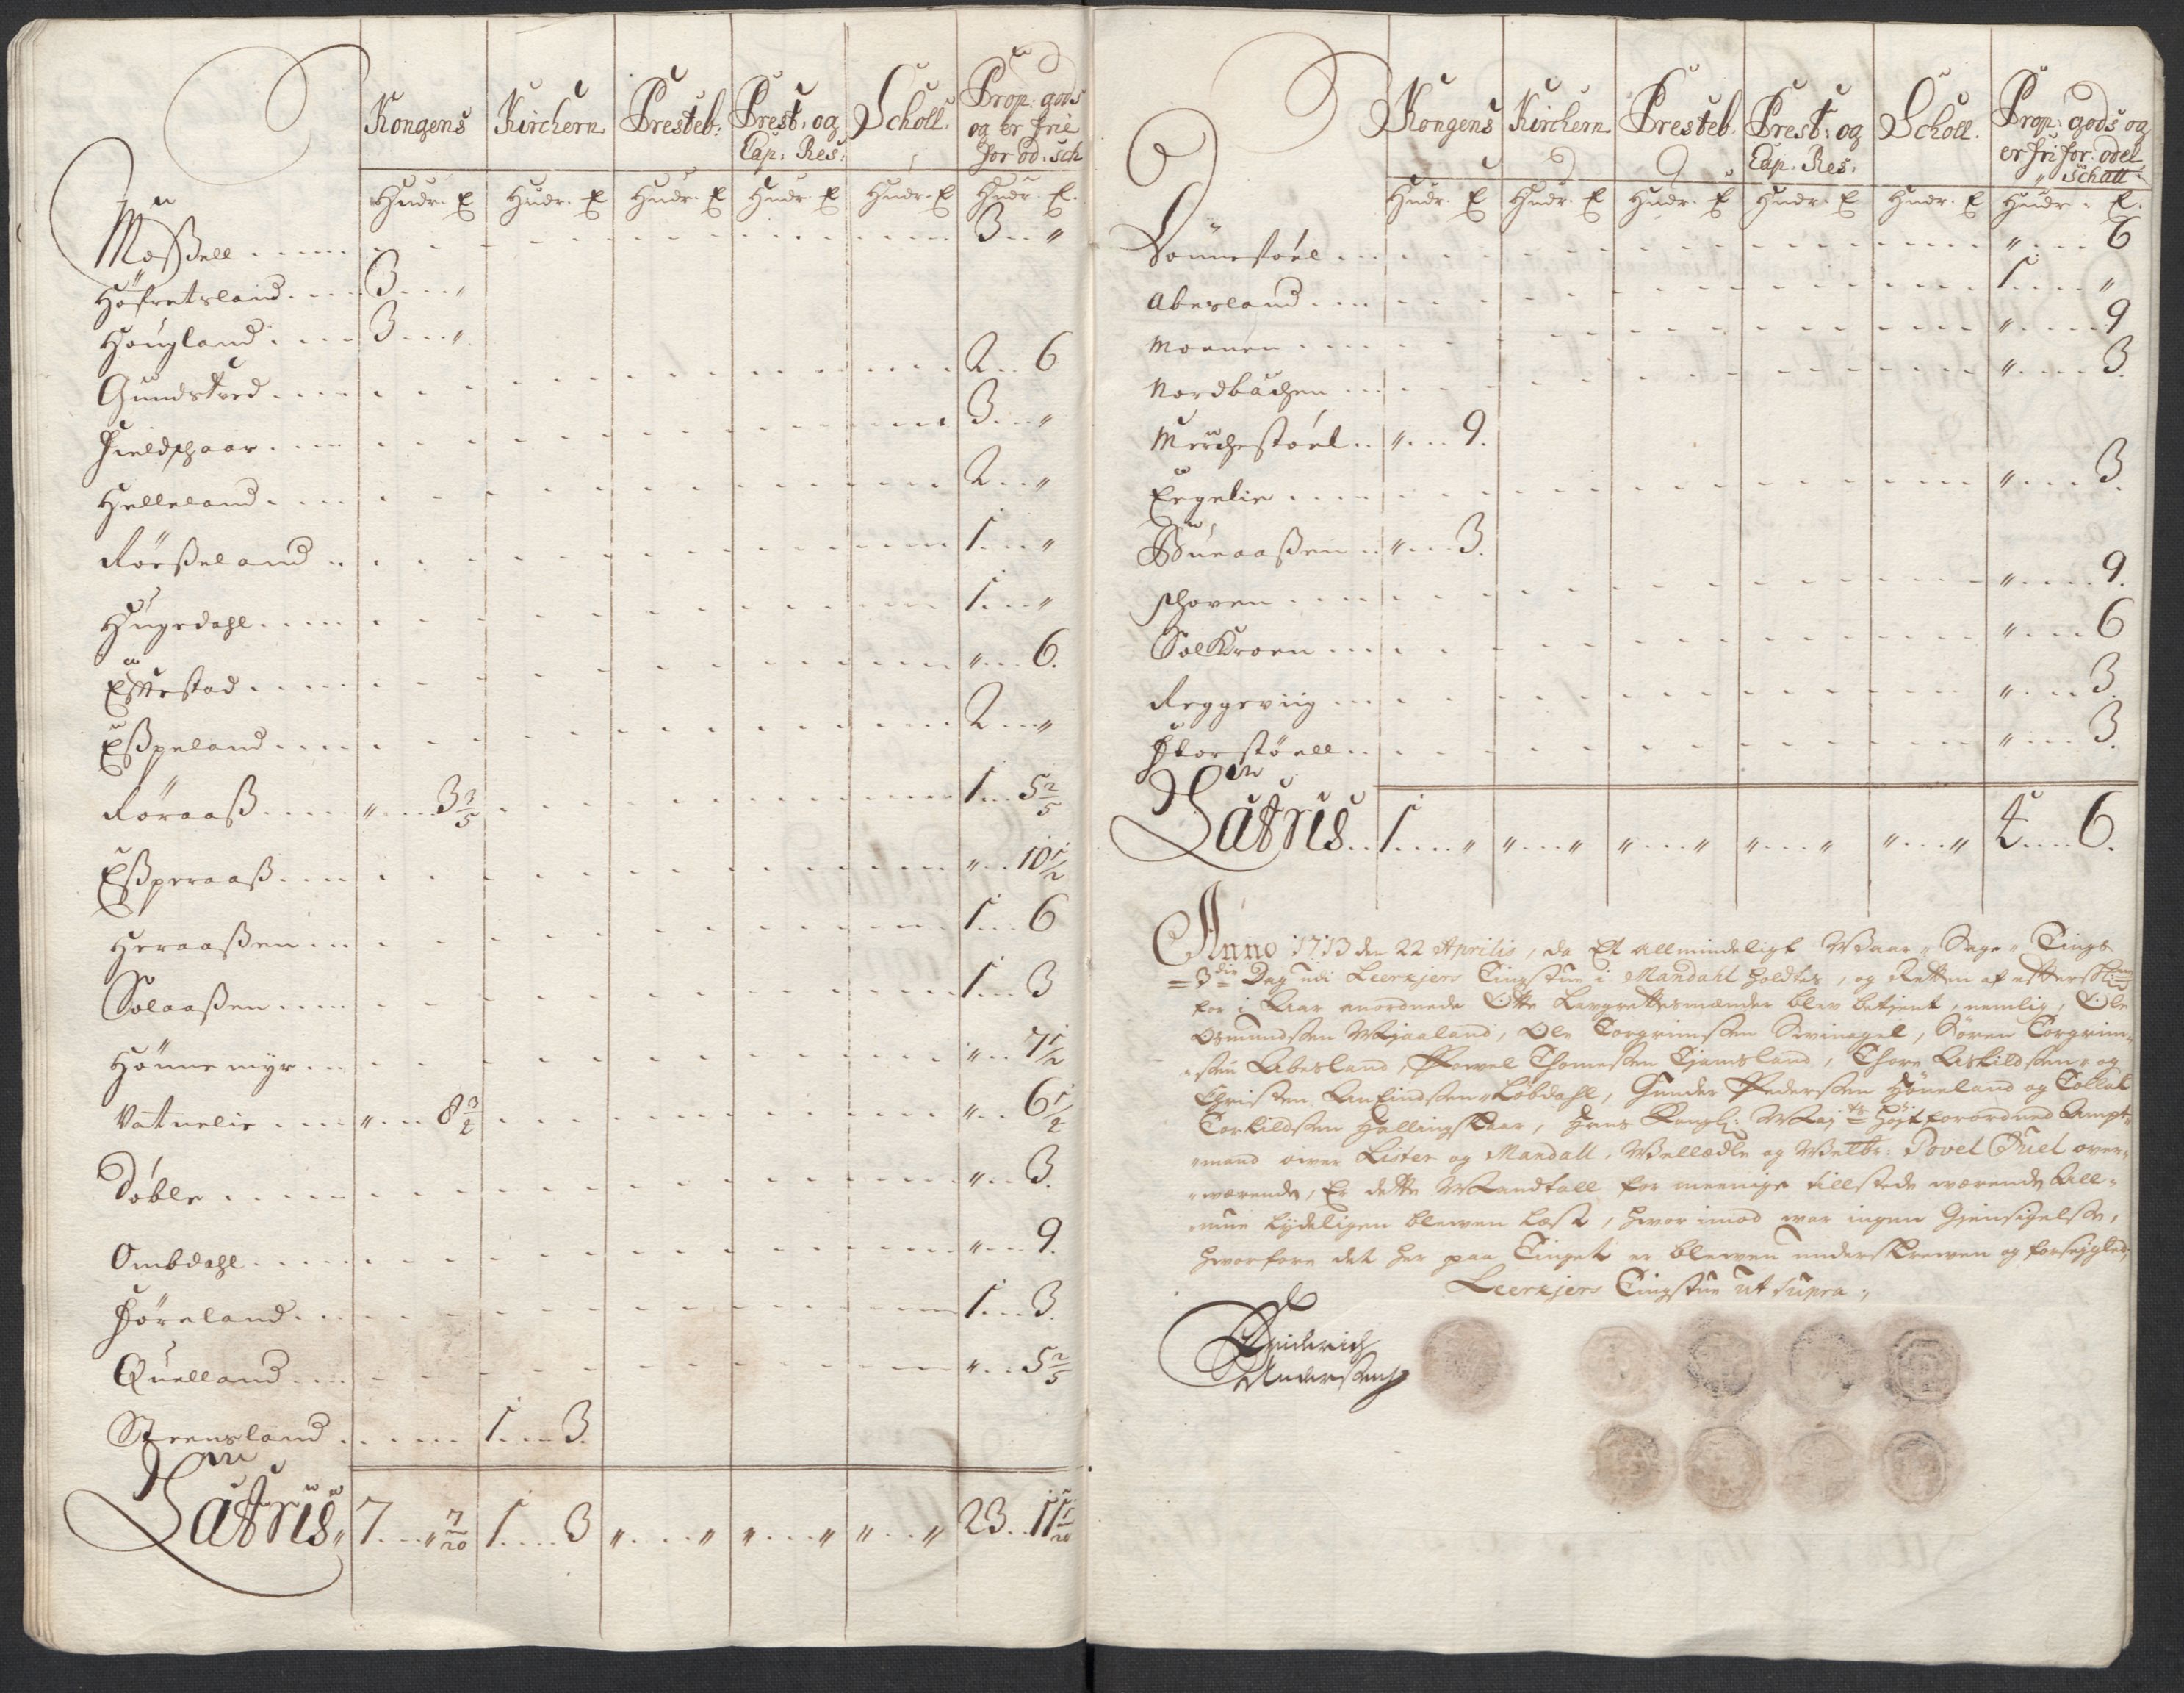 Kongens Kirchern Presteb: Prest, og Cap: Res: Scholl. Prop: gods og er frie for od: sch
Hudr. E Hudr. E Hudr. E Hudr. E Hudr. E Hudr. E.
Moßell . . . . . 3 . . "
Höfretsland . . . . 3 . . . "
Hougland . . . . 3 . . . "
Gundsted . . . . 2 . . 6
Fieldschaar . . . . 3 . . "
Helleland . . . . 2 . . "
Rörßeland . . 1 . . . "
Hugedahl . . . . 1 . . . "
Eftestad . . . . " . . . 6.
Eßpeland . . . . 2 . . . "
Röraaß . . . . " . . . 3 3/5 1 . . 5 2/5
Eßperaaß . . . . " . . 10 1/2
Heraaßen . . . 1 . . 6
Solaaßen . . . . 1 . . 3
Hönnemyr . . . " . . 7 1/2
Vatnelie . . . . " . . . 8 3/4 " . . 6 1/2
Döble . . . . . " . . 3.
Ombdahl . . . . . " . . . 9.
Höreland . . . 1 . . . 3.
Quelland . . . " . . 5 2/5
Steensland . . . . . 1 . . . 3.
Latris " 7 . . . " 7/20 1 . . . . 3 " . . . . " " . . . . " " . . . " 23 . . 11 1/20
Kongens Kirchern Presteb. Prest: og Cap. Res. Scholl. Prop: gods og er fri for: odel Schatt
Hudr. E Hudr. E Hudr. E Hudr. E Hudr. E Hudr. E.
Lönnestöel . . . " . . . 6
Abesland . . . . 1 . . . . "
Moenen . . . . " . . . . 9
Nordbachen . . . " . . . . 3.
Merchestöel . . " . . . 9.
Ergelie . . . . . " . . . . 3.
Bueaaßen . . " . . . 3.
Schoven . . . . " . . . . 9.
Solkroen . . . " . . . 6
Reggeviig . . . " . . . 3.
Storstöell . . " . . . 3.
Latris . . 1 . . . . " " . . . " " . . . " " . . . " " . . . " 4 . . . 6.
Anno 1713 den 22 Aprilis, da Et Allmindeligt Waar " Sage " Tings
3die Dag udi Leerkjers Tingstue i Mandahl holdtes, og Retten af
for i Aar anordnede Otte Laugrettesmænder blev betjent, nemlig, Ole
Osmundsen Mjaaland, Ole Torgrimsen Svinagel, Sören Torgrim-
sen Abesland, Powel Thomesen Tjamsland, Thore Eskildsen, og
Christen Anfindsen Löbdahl, Gunder Pedersen Höneland og Tollak
Torkildsen Hallingskaar, Hans Kongl: Maj:ts Höjt forordned Ampt-
mand over Lister og Mandall, Velædle og Velbr: Povel Juel over-
værende, Er dette Mandtall for meenige tillstede værende All-
mue lydeligen bleven Læst, hvor imod var ingen Gjensigelse,
hvorfore det her paa Tinget er bleven underskreven og forseyglet.
Leerkjers Tingstue ut supra.
Friderich
Andersen